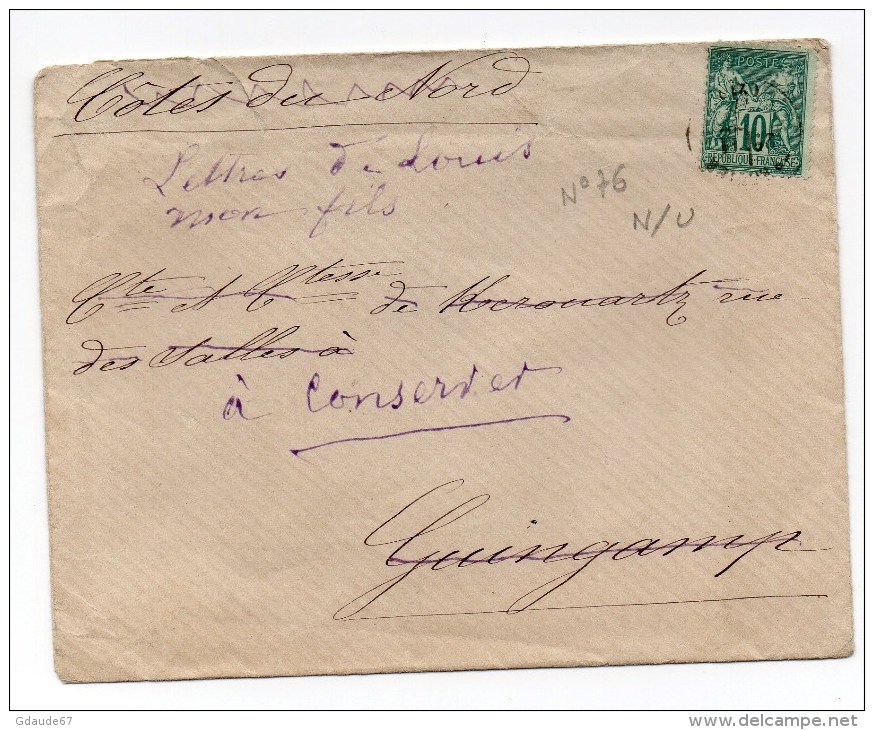 Côtes du Nord
POSTES
10
RÉPUBLIQUE FRANÇAISE
Lettres de Louis
mon fils
N° 76
N/U
Cte et Ctesse de Kerouartz rue
des Salles à
à conserver
Guingamp
Gdaude67
www.delcampe.net